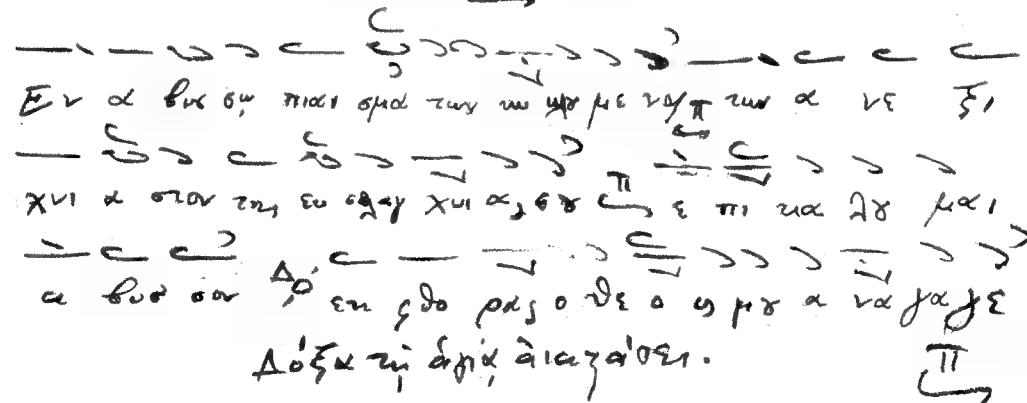 Εν α βυσ σῳ πται σμα των κυ κλȣ με νος π την α νε ξι
χνι α στον της ευ σπλαγ χνι ας σȣ π ε πι κα λȣ μαι
α βυσ σον Δ εκ φθο ρας ο θε ο ς μȣ α να γα γε
Δόξα τῇ ἁγίᾳ ἀναστάσει. π